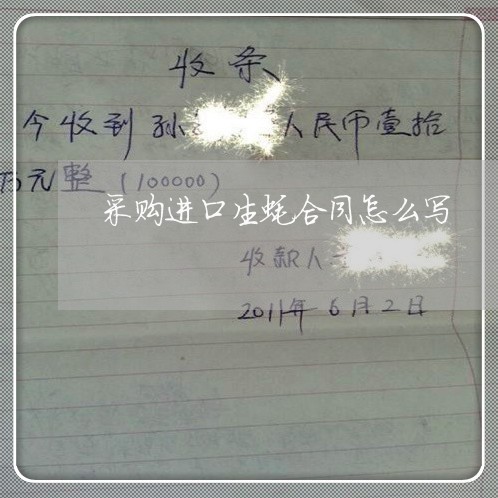 收条
今收到孙 人民币壹拾
万元整（100000）
采购进口生蚝合同怎么写
收款人
2011年6月2日